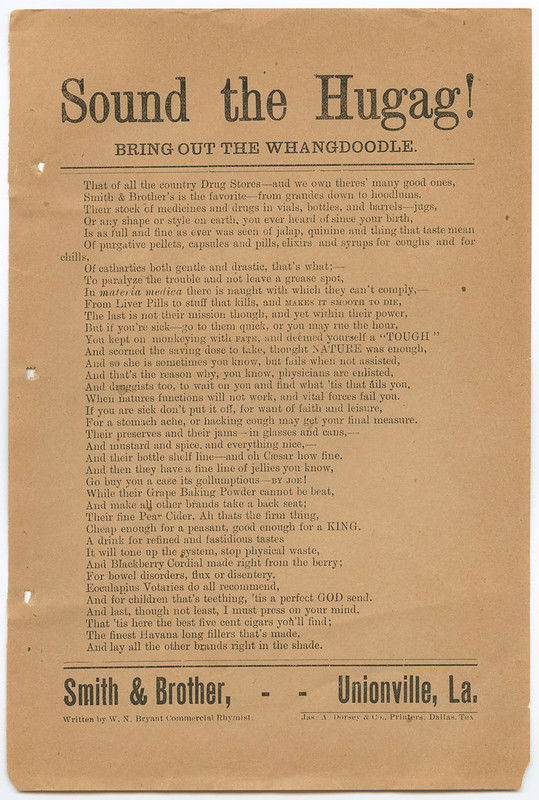 Sound the Hugag!
BRING OUT THE WHANGDOODLE.
That of all the country Drug Stores—and we own theres' many good ones,
Smith & Brother's is the favorite—from grandes down to hoodlums.
Their stock of medicines and drugs in vials, bottles, and barrels—jugs,
Or any shape or style on earth, you ever heard of since your birth,
Is as full and fine as ever was seen of jalap, quinine and thing that taste mean
Of purgative pellets, capsules and pills, elixirs and syrups for coughs and for
chills,
Of cathartics both gentle and drastic, that's what;—
To paralyze the trouble and not leave a grease spot,
In materia medica there is naught with which they can't comply,—
From Liver Pills to stuff that kills, and MAKES IT SMOOTH TO DIE,
The last is not their mission though, and yet within their power,
But if you're sick—go to them quick, or you may rue the hour,
You kept on monkeying with FATE, and deemed yourself a "TOUGH"
And scorned the saving dose to take, thought NATURE was enough,
And so she is sometimes you know, but fails when not assisted,
And that's the reason why, you know, physicians are enlisted,
And druggists too, to wait on you and find what 'tis that ails you,
When natures functions will not work, and vital forces fail you.
If you are sick don't put it off, for want of faith and leisure,
For a stomach ache, or hacking cough may get your final measure.
Their preserves and their jams—in glasses and cans,—
And mustard and spice, and everything nice,—
And their bottle shelf line—and oh Cæsar how fine.
And then they have a fine line of jellies you know,
Go buy you a case its gollumptious—BY JOE!
While their Grape Baking Powder cannot be beat,
And make all other brands take a back seat;
Their fine Pear Cider, Ah thats the firm thing,
Cheap enough for a peasant, good enough for a KING.
A drink for refined and fastidious tastes
It will tone up the system, stop physical waste,
And Blackberry Cordial made right from the berry;
For bowel disorders, flux or disentery,
Eoculapius Votaries do all recommend,
And for children that's teething, 'tis a perfect GOD send.
And last, though not least, I must press on your mind,
That 'tis here the best five cent cigars you'll find;
The finest Havana long fillers that's made,
And lay all the other brands right in the shade.
Smith & Brother, - - Unionville, La.
Written by W. N. Bryant Commercial Rhymist. Jas. A. Dorsey & Co., Printers, Dallas, Tex